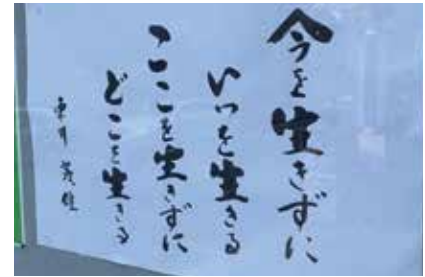 今を生きずに
いつを生きる
ここを生きずに
どこを生きる
東井義雄